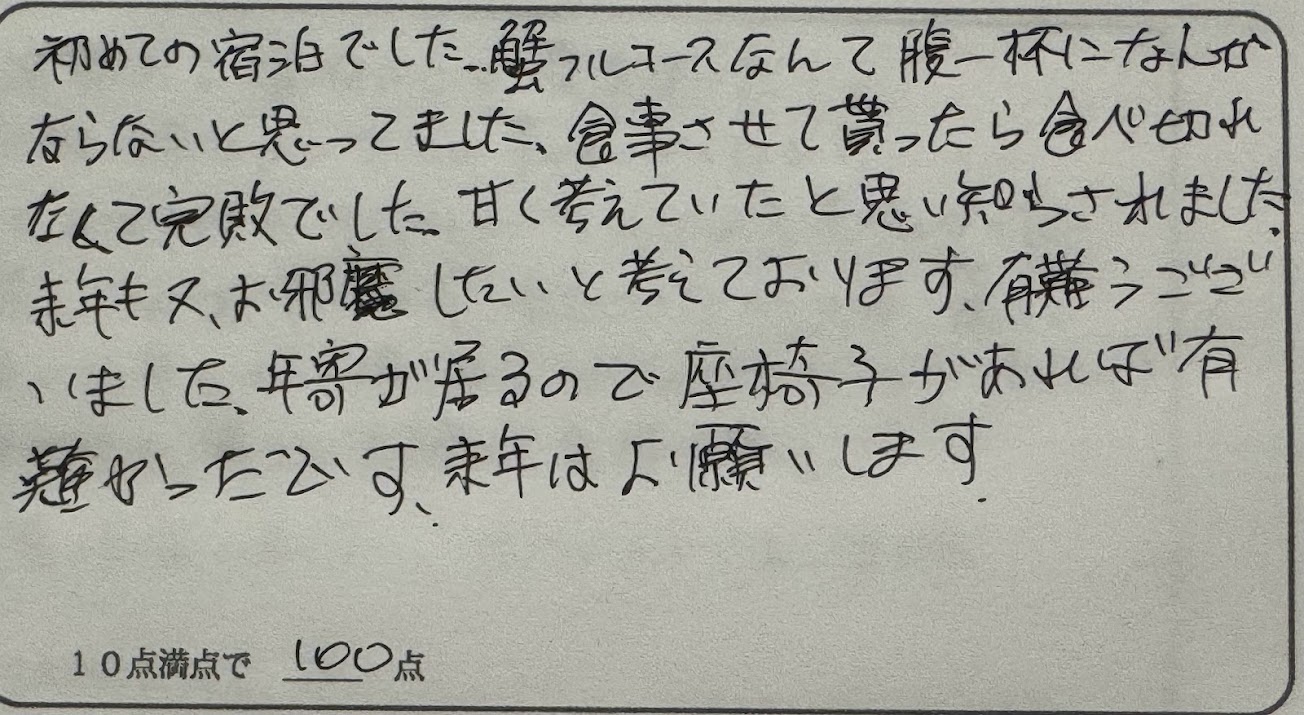 初めての宿泊でした。蟹フルコースなんて腹一杯になんか
ならないと思ってました、食事させて貰ったら食べ切れ
なくて完敗でした。甘く考えていたと思い知らされました。
来年も又、お邪魔したいと考えております、有難うござ
いました。年寄が居るので座椅子があれば有
難かったです、来年はお願いします.
10点満点で 100点